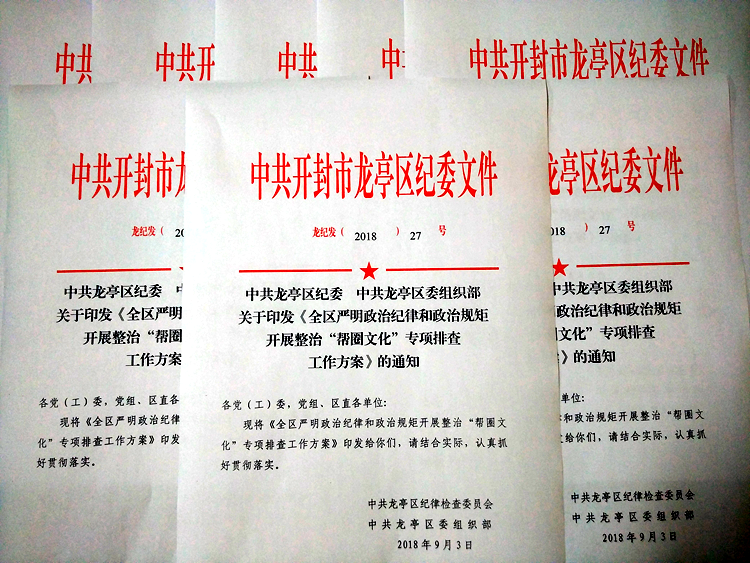 中共
中共开
中共
中
中共开封市龙亭区纪委文件
中共开封市龙
龙纪发（ 20
中共龙亭区纪委 中
关于印发《全区严明
开展整治“帮圈
工作方案
各党（工）委，党组、区直各
现将《全区严明政治纪律
化”专项排查工作方案》印发
好贯彻落实。
中共开封市龙亭区纪委文件
龙纪发（ 2018 ） 27 号
中共龙亭区纪委 中共龙亭区委组织部
关于印发《全区严明政治纪律和政治规矩
开展整治“帮圈文化”专项排查
工作方案》的通知
各党（工）委，党组、区直各单位：
现将《全区严明政治纪律和政治规矩开展整治“帮圈文
化”专项排查工作方案》印发给你们，请结合实际，认真抓
好贯彻落实。
中共龙亭区纪律检查委员会
中共龙亭区委组织部
2018年9月3日
龙亭区纪委文件
018 ） 27 号
龙亭区委组织部
政治纪律和政治规矩
圈文化”专项排查
》的通知
单位：
和政治规矩开展整治“帮圈文
发给你们，请结合实际，认真抓
中共龙亭区纪律检查委员会
中共龙亭区委组织部
2018年9月3日